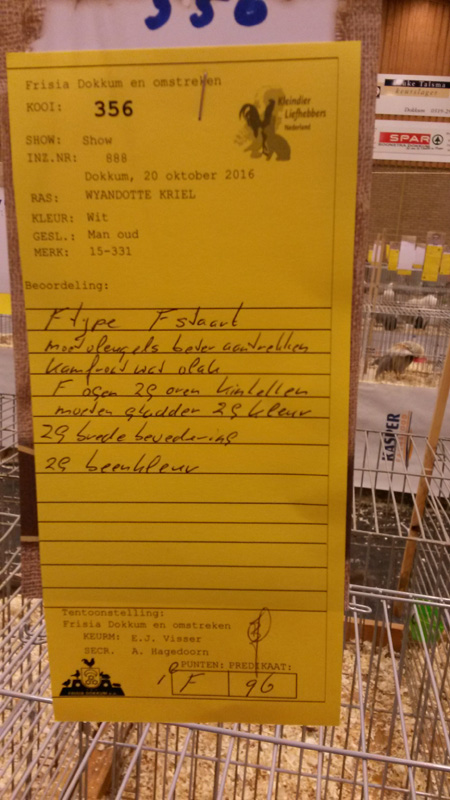 356
Frisia Dokkum en omstreken
KOOI: 356
Kleindier
Liefhebbers
Nederland
SHOW: Show
INZ.NR: 888
Dokkum, 20 oktober 2016
RAS: WYANDOTTE KRIEL
KLEUR: Wit
GESL.: Man oud
MERK: 15-331
Beoordeling:
F type F staart
moet vleugels beter aantrekken
kamfront wat vlak
F ogen ZG oren kinlellen
moeten gladder ZG kleur
ZG brede bevedering
ZG beenkleur
Tentoonstelling:
Frisia Dokkum en omstreken
KEURM: E.J. Visser
SECR. A. Hagedoorn
PUNTEN: PREDIKAAT:
F 96
Talsma
Dokkum
SPAR
KASPER